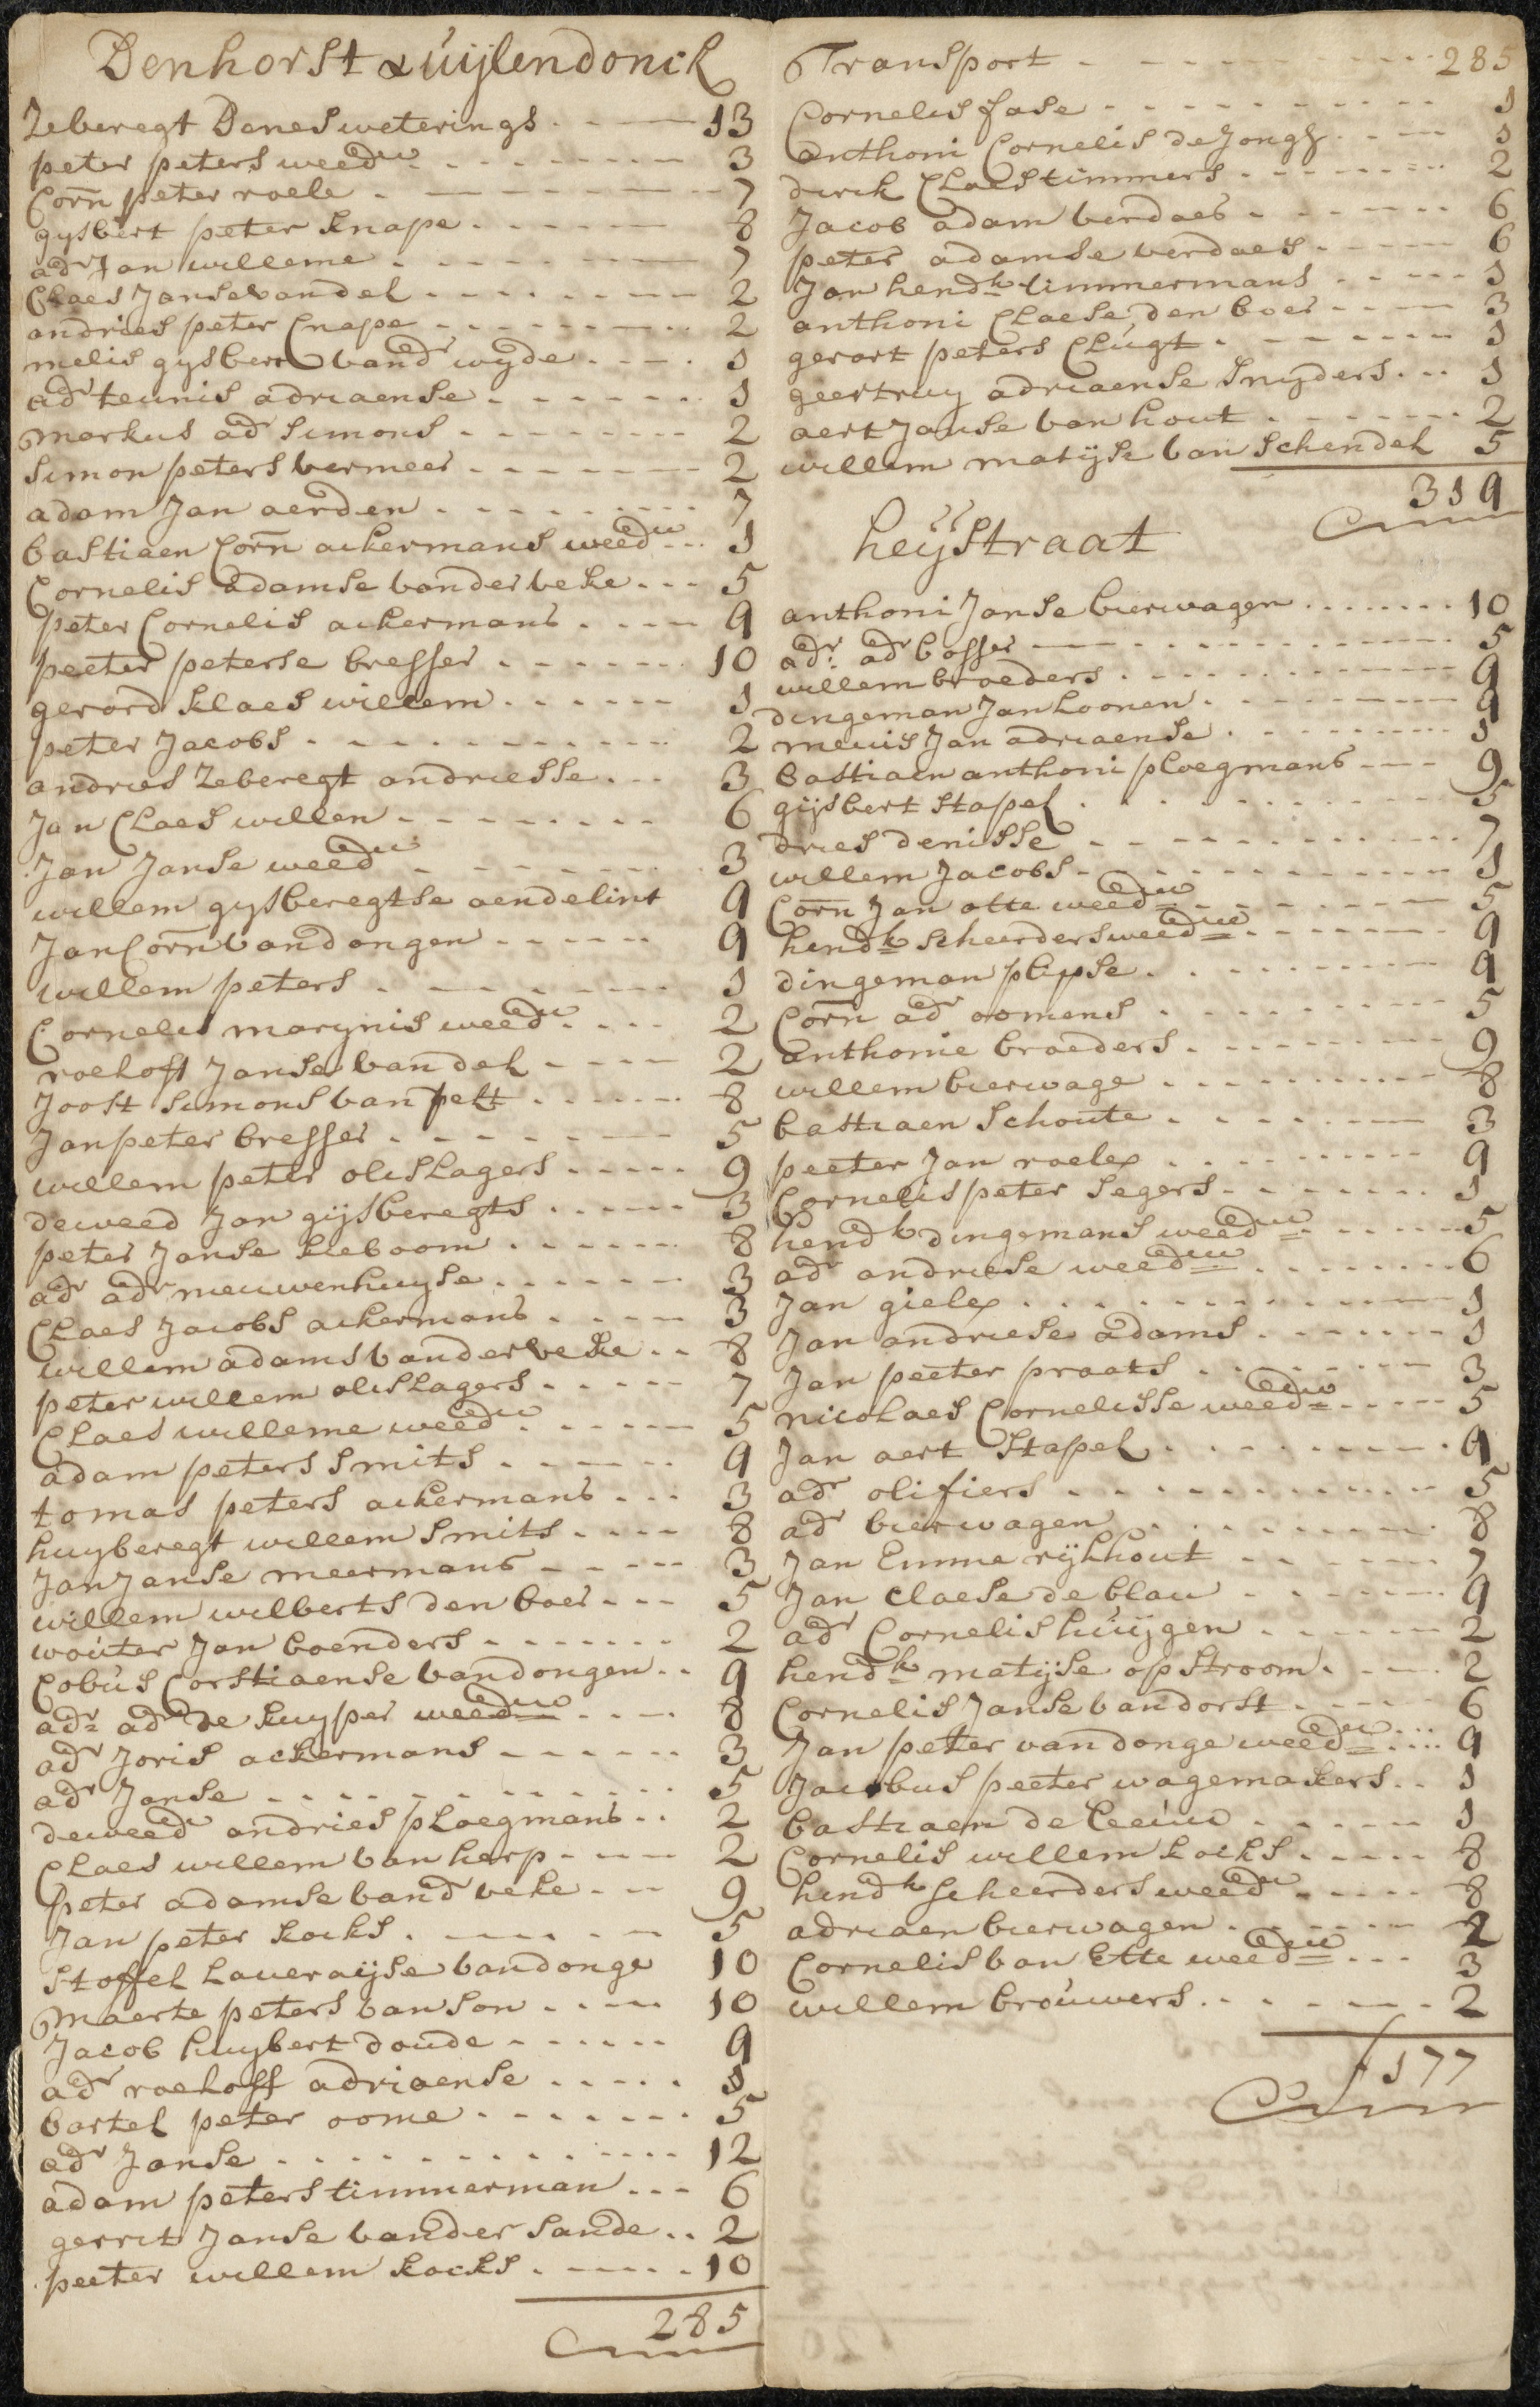 Denhorst & uijlendonck
Zeberegt Denes weterings 13
peter peters weedw 3
Corn peter roele 7
gysbert peter knape 8
adr Jan willeme 7
Claes Janse vandel 2
andries peter Cnape 2
melis gysbert vandr wyde 1
adr teunis adriaense 1
markus adr simons 2
simon peters vermeer 2
adam Jan aerden 7
bastiaen Corn ackermans weedw 1
Cornelis adamse vander veke 5
peter Cornelis ackermans 9
peeter peterse bresser 10
gerord klaes willem 1
peter Jacobs 2
andries Zeberegt andriesse 3
Jan Claes willen 6
Jan Janse weedw 3
willem gysberegtse aendelint 9
Jan Corn vandongen 9
willem peters 1
Cornelis marynis weedw 2
roeloff Janse vandel 2
Joost simons van pelt 8
Jan peter bresser 5
willem peter olislagers 9
deweed Jan gijsberegts 3
peter Janse kieboom 8
adr adr nieuwenhuyse 3
Claes Jacobs ackermans 3
willem adams vander veke 8
peter willem olislagers 7
Claes willeme weedw 5
adam peters smits 9
tomas peters ackermans 3
huyberegt willem smits 8
Jan Janse meermans 3
willem wilberts den boer 5
wouter Jan boenders 2
Cobus Corstiaense vandongen 9
adr adr de kuyper weedw 8
adr Joris ackermans 3
adr Janse 5
deweedw andries ploegmans 2
Claes willem van herp 2
peter adamse vandr veke 9
Jan peter kocks 5
stoffel Laueraijse vandonge 10
maerte peters van son 10
Jacob huybert doude 9
adr roeloff adriaense 1
bartel peter oome 5
adr Janse 12
adam peters timmerman 6
gerrit Janse vander sande 2
peeter willem kocks 10
285
Transport 285
Cornelis fase 1
anthoni Cornelis de Jongh 1
dirck Claes timmers 2
Jacob adam verdaes 6
peter adamse verdaes 6
Jan hendk timmermans 1
anthoni Claese den boer 3
gerart peters Clugt 1
geertruy adriaense snyders 1
aert Janse van hout 2
willem matijse van schendel 5
319
heijstraat
anthoni Janse bierwagen 10
adr adr bosser 5
willem broeders 9
dingeman Jan Loonen 9
meuis Jan adriaense 1
bastiaen anthoni ploegmans 9
gijsbert stapel 5
dries denisse 7
willem Jacobs 1
Corn Jan otte weedw 5
hendk scheerders weedwe 9
dingeman flipse 9
Corn adr oomens 5
anthonie broeders 9
willem bierwage 8
bastiaen schoute 3
peeter Jan roelex 9
Cornelis peter segers 1
hendk dingemans weedw 5
adr andriese weedw 6
Jan gielex 1
Jan andriese adams 1
Jan peeter praats 3
nicolaes Cornelisse weedw 5
Jan aert stapel 9
adr olifiers 5
adr bierwagen 8
Jan Emme rijkhout 7
Jan claese de blau 9
adr Cornelis huijgen 2
hendk matijse opstroom 2
Cornelis Janse vandorst 6
Jan peter van donge weedw 9
Jacobus peeter wagemakers 1
bastiaen de leeuw 1
Cornelis willem kocks 8
hendk scheerders weedw 8
adriaen bierwagen 2
Cornelis van Ette weedw 3
willem brouwers 2
f 177